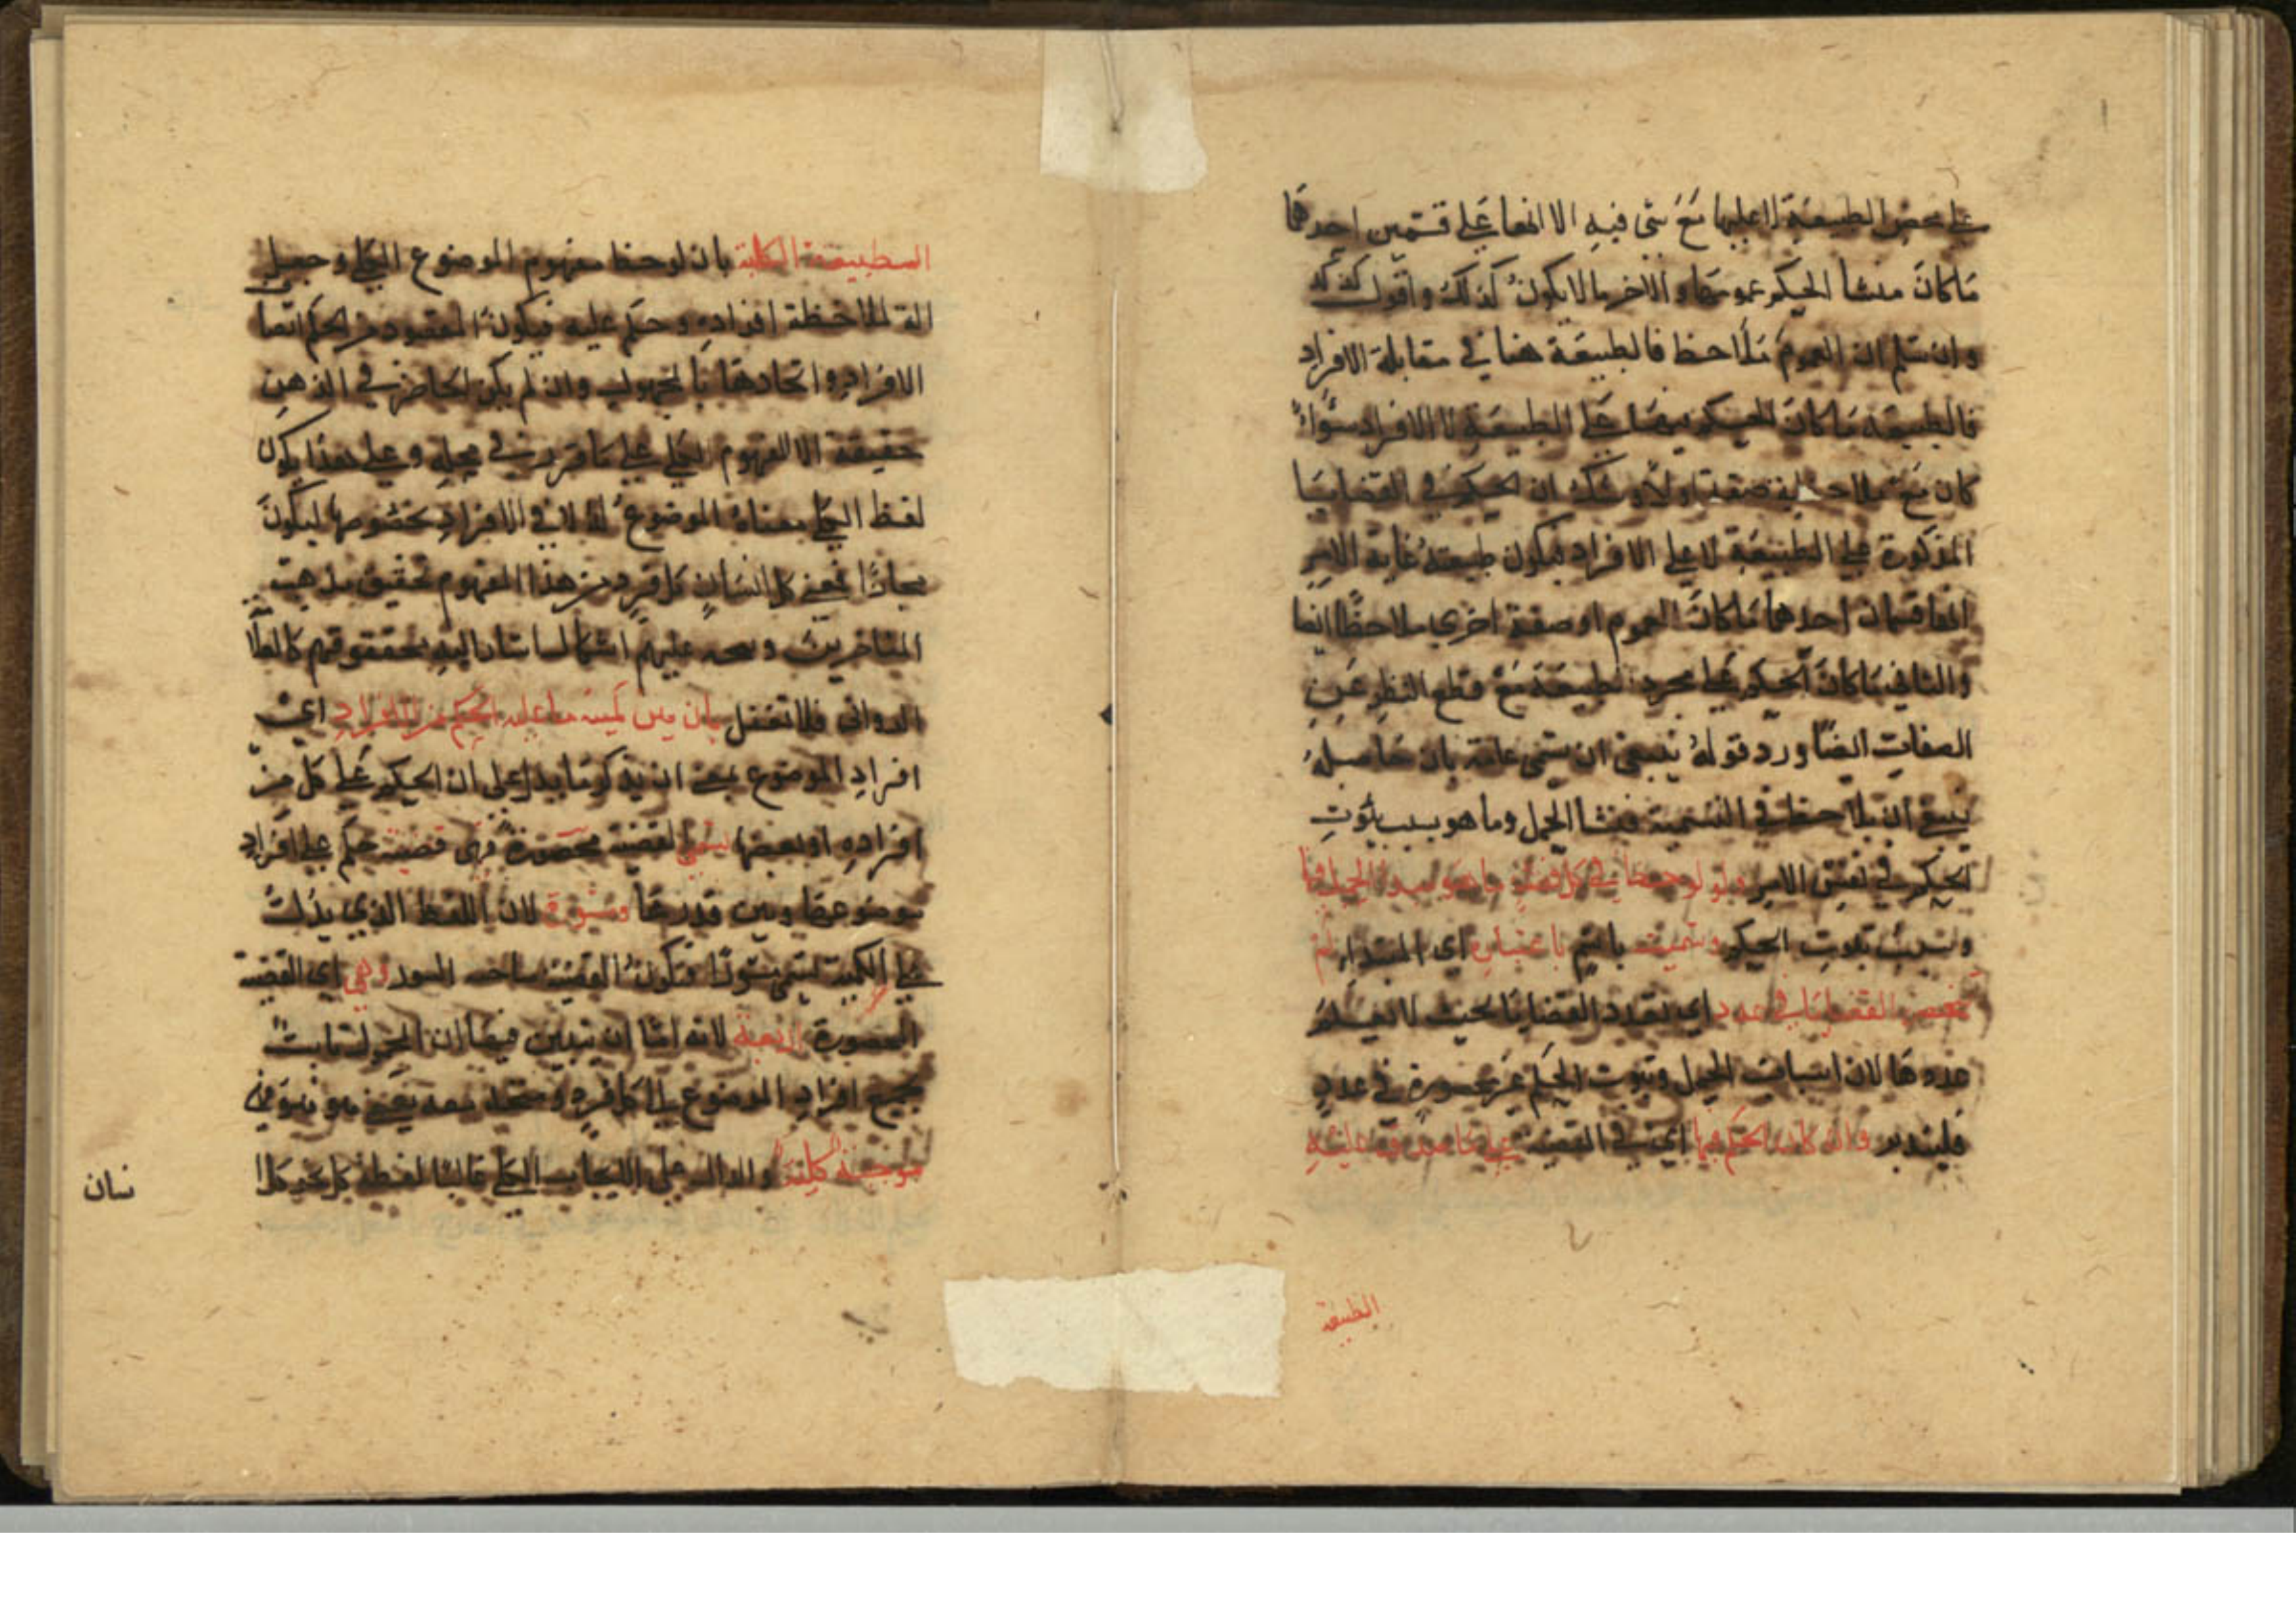 على محض الطبيعة لا عليها مع شئ فيه الا انها على قسمين احدهما
ما كان منشا الحكم عمومها والاخر ما لا يكون كذلك واقول كذلك
وان سلم ان العموم ملاحظ فالطبيعة هنا في مقابلة الافراد
فالطبيعة ما كان الحكم فيها على الطبيعة لا الافراد سواء
كان مع صفة اولا ولا شك ان الحكم في القضايا
المذكورة على الطبيعة لا على الافراد فيكون طبيعة غاية الامر
انها قسمان احدهما ما كان العموم او صفة اخرى ملاحظا ايضا
والثاني ما كان الحكم على مجرد الطبيعة مع قطع النظر عن
الصفات ايضا ورد قوله ينبغي ان تسمى عامة بان حاصله
ينبغي ان يلاحظ في التسمية منشا الحمل وما هو سبب ثبوت
الحكم في نفس الامر ولو لوحظ في كل قضية ما هو مبدا الحمل فيها
وسبب ثبوت الحكم وسميت باسم باعتباره اي المبتداء لم
تنحصر القضايا في عدد اي تعدد القضايا بحيث لا يعلم
عددها لان اسباب الحمل وثبوت الحكم غير محصورة في عدد
فليتدبر وان كان الحكم فيها اي في القضية على ما صدقت عليه
الطبيعة
الطبيعة الكلية بان لوحظ مفهوم الموضوع الكلي وجعل
الة لملاحظة افراده وحكم عليه فيكون المقصود من الحكم اتصا
الافراد واتحادها بالمحمول وان لم يكن الحاضر في الذهن
حقيقة الا المفهوم الكلي على ما قرر في محله وعلى هذا يكون
لفظ الكلي معناه الموضوع له لا في الافراد بخصوصها ليكون
مجازا فمعنى كل انسان كل فرد من هذا المفهوم تحقيق مذهب
المتاخرين عليهم اشكال اشار اليه محققوهم كالعلا
الدواني فلا تغفل بان بين كمية ما عليه الحكم من الافراد اي
افراد الموضوع بمعنى ان يذكر ما يدل على ان الحكم على كل من
افراده او بعضها تسمى القضية محصورة فهى قضية حكم على افراد
موضوعها وبين قدرها ومسورة لان اللفظ الذي يدل
على الكمية تسمى سورا فتكون القضية السور وهي اي القضية
المحصورة اربعة لانه اما ان يبين فيها ان المحمول ثابت
لجميع افراد الموضوع
موجبة كلية والدال على الايجاب الكلي غالبا لفظة كل نحو كل ا
نسان